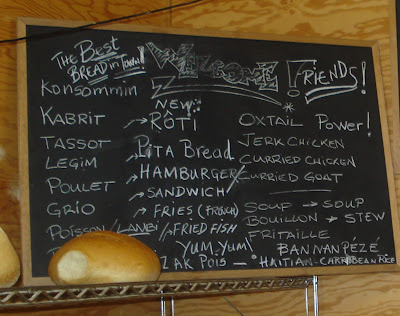 THE BEST
BREAD IN TOWN!
WELCOME FRIENDS!
KONSOMMIN
NEW
KABRIT → ROTI
TASSOT → PITA BREAD
LEGIM → HAMBURGER/
POULET SANDWICH
GRIO → FRIES (FRENCH)
POISSON/LANBI → /FRIED FISH
YUM, YUM!
Z AK POIS — HAITIAN-CARRIBEAN RICE
OXTAIL POWER!
JERK CHICKEN
CURRIED CHICKEN
CURRIED GOAT
SOUF → SOUP
BOUILLON → STEW
FRITAILLE
BANNAN PÉZÉ